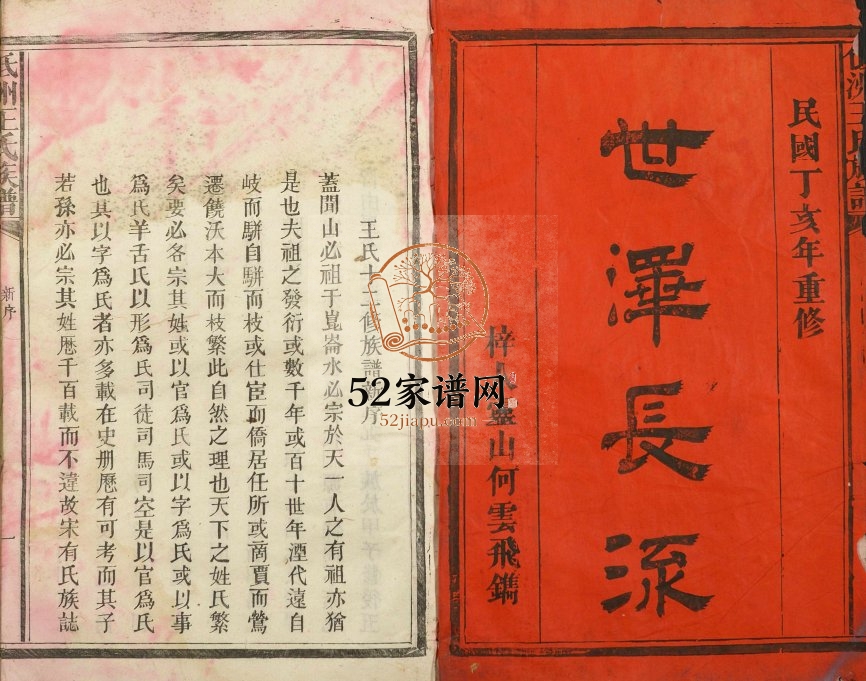 民國丁亥年重修
世澤長流
山何雲飛鐫
王氏十二修族譜新序
蓋聞山必祖于崑崙水必宗於天一人之有祖亦猶
是也夫祖之發衍或數千年或百十世年湮代遠自
岐而駢自駢而枝或仕宦而僑居任所或啇賈而鶯
遷饒沃本大而枝繁此自然之理也天下之姓氏繁
矣要必各宗其姓或以官爲氏或以字爲氏或以事
爲氏羊舌氏以形爲氏司徒司馬司空是以官爲氏
也具以字爲氏者亦多載在史册厯有可考而其子
若孫亦必宗其姓厯千百載而不違故宋有氏族誌
氏族譜
新序
一
52家谱网
52jiapu.com